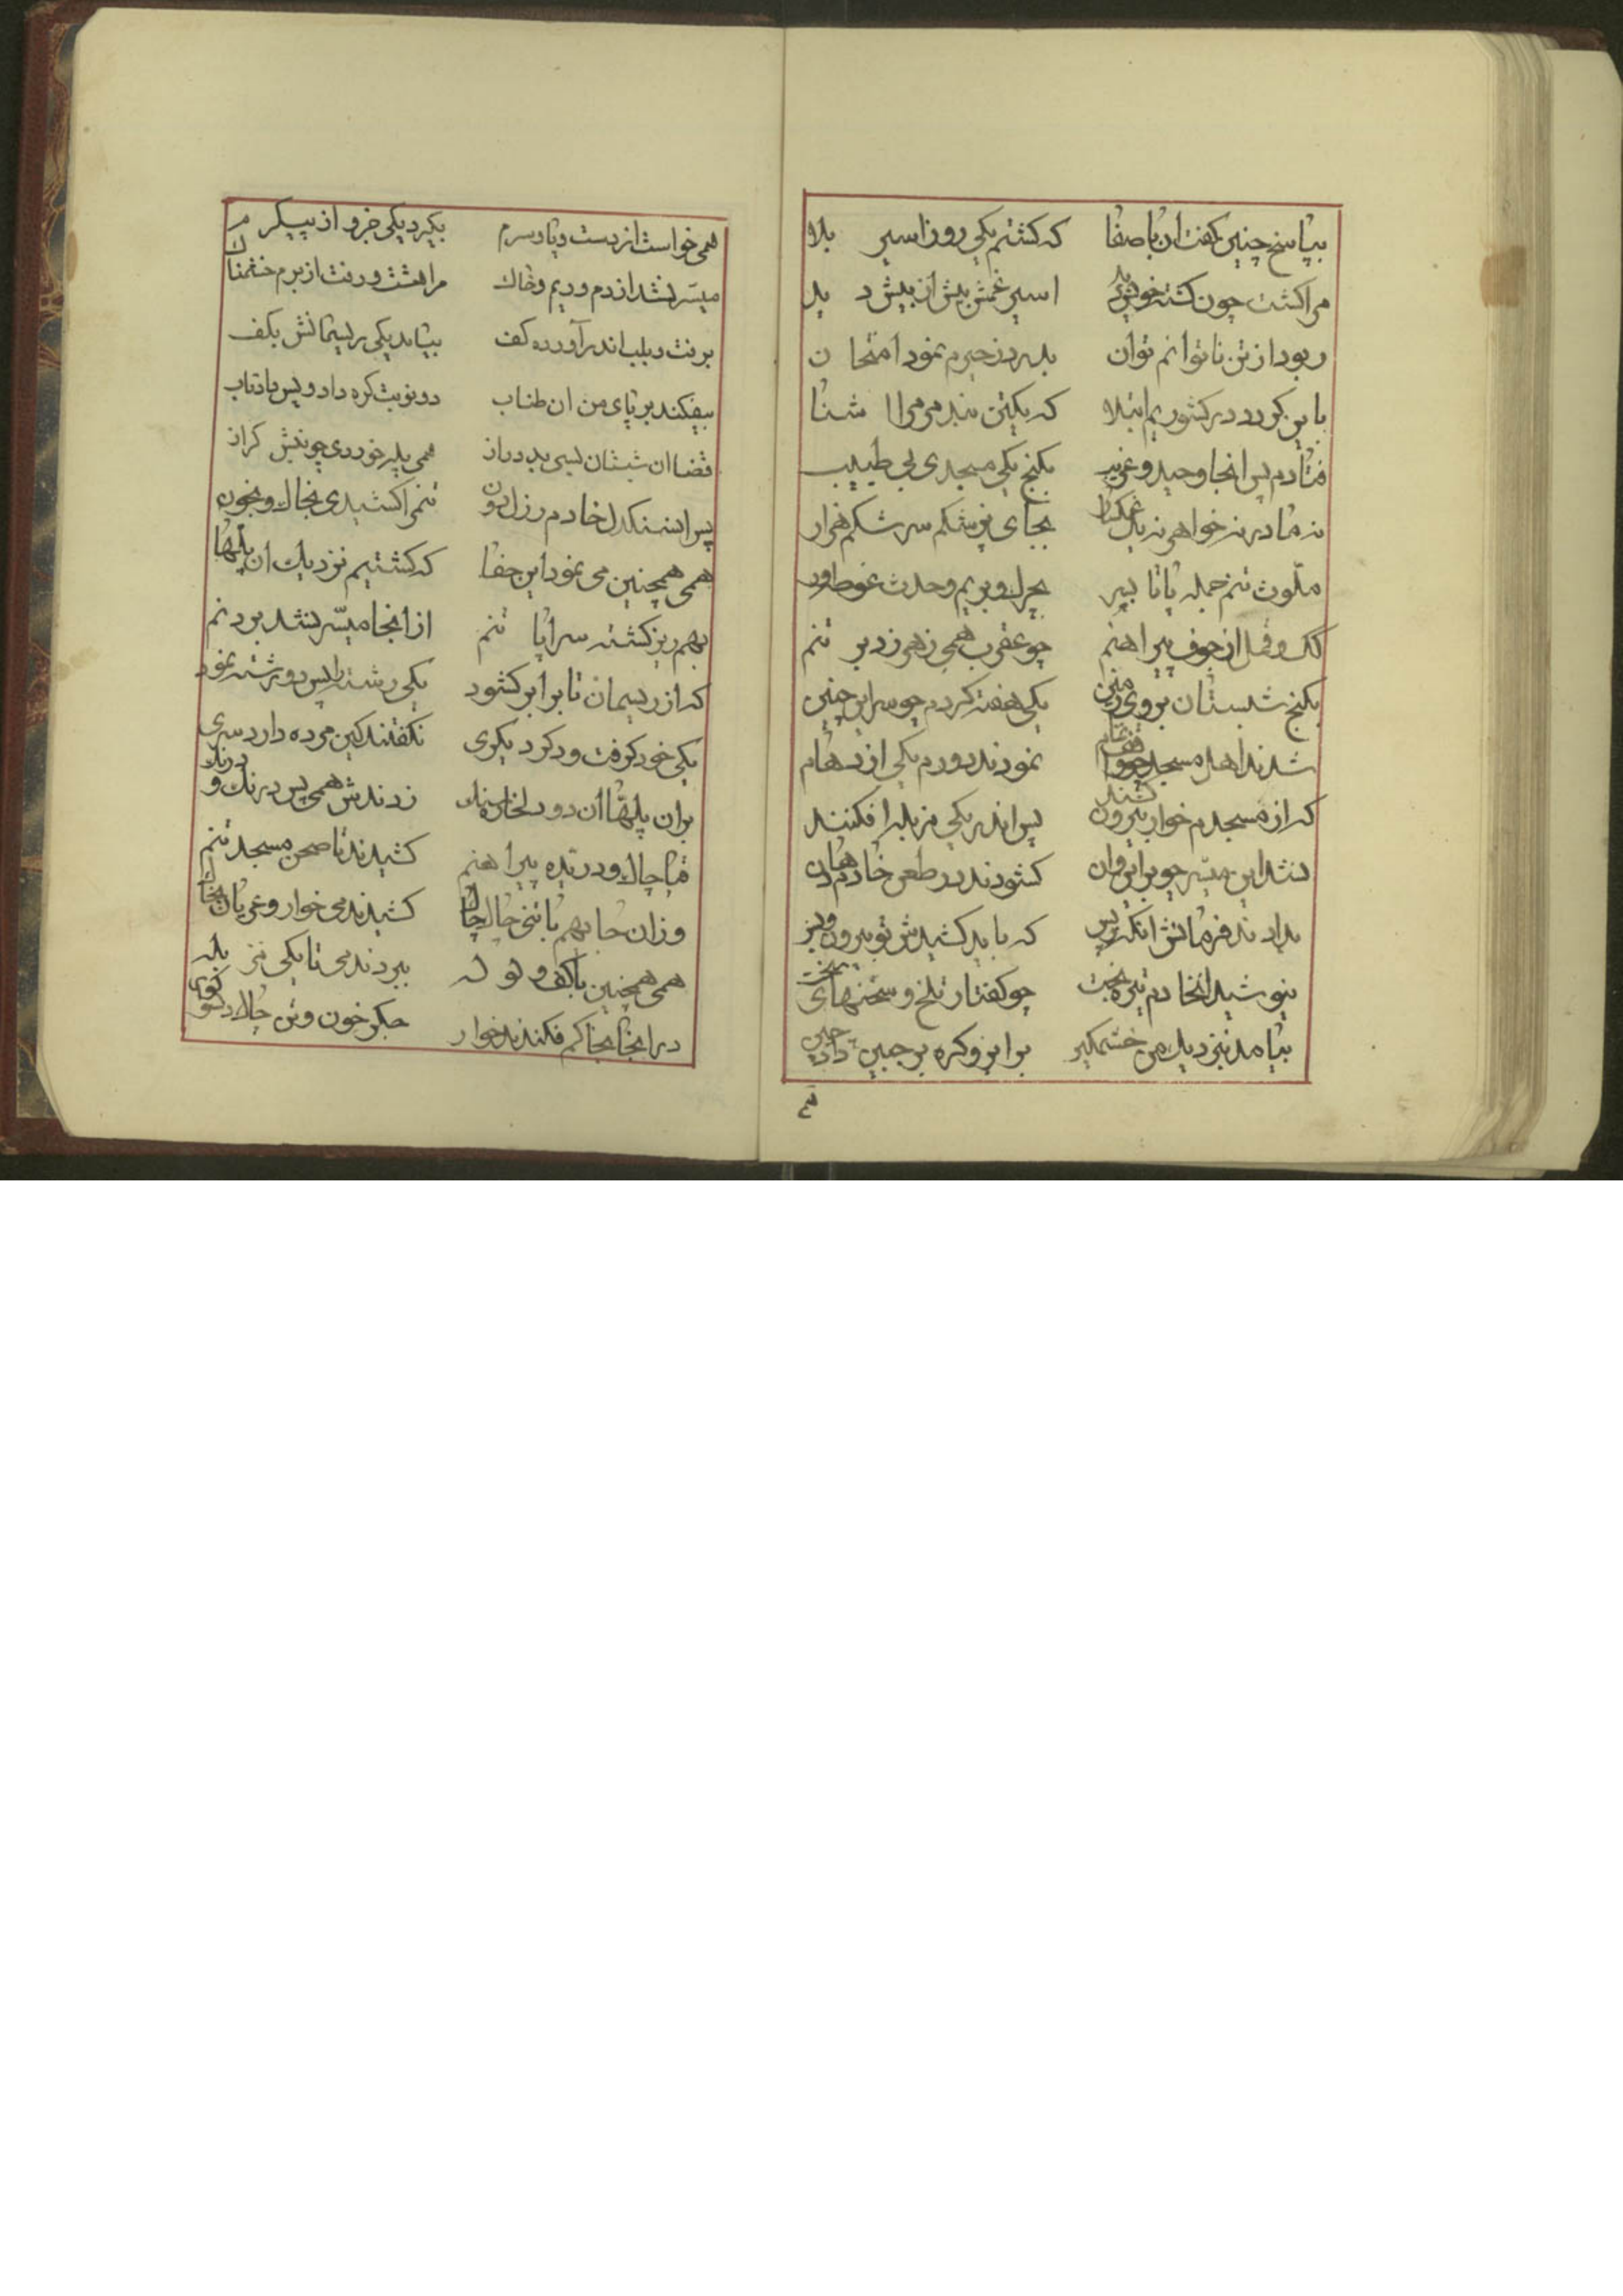 بپاسخ چنین کفت ان باصفا که کشتم یکی روز اسیر بلا
مرا کشت چون کشته خویش دید اسیر غمش بیش از بیش دید
ربود از تن ناتوانم توان بدرد زحیرم نمود امتحان
باین کورد در کشوریم ابتلا که یکتن نبد مر مرا اشنا
فتادم پس انجا وحید و غریب بکنج یکی مسجدی بی طبیب
نه مادر نه خواهر نه یک غمکسار بجای پزشکم سرشکم
ملوث تنم جمله پا تا بسر بچرک و بریم و حدث غوطه‌ور
کک و قمل از جوف پیراهنم چو عقرب همی زهر زد بر تنم
بکنج شبستان بروی زمین یکی هفته کردم چو سر اینچنین
شدند اهل مسجد نمودند دورم یکی ازدهام
که از مسجدم خوار بیرون کشند پس اندر یکی مزبله افکنند
نشد این میسر چو برایروان کشودند در طعن خادم
بدادند فرمانش انکه پس که باید کشیدش تو بیرون
نیوشید انخادم تیره بخت چو کفتار تلخ و سخنهای سخت
بیامد بنزدیک من خشمکیر بر ابرو کره بر جبین داد چین
همی خواست از دست و پا و سرم بکیرد یکی جزو از پیکرم
میسر نشد از دم و ریم و خاک مرا هشت و رفت از برم خشمناک
برفت و بلب اندر آورده کف بیامد یکی ریسمانش بکف
بیفکند بر پای من ان طناب دو نوبت کره داد و پس باد تاب
قضا ان شبستان بسی بد دراز همی پله خوردی چو بندش کراز
پس ان سنکدل خادم رزل دون تنمرا کشیدی بخاک و بخون
همی همچنین می نمود این جفا که کشتیم نزدیک ان پلها
بهم ریز کشته سراپا تنم از انجا میسر نشد بردنم
که از ریسمان تا برابر کشود یکی رشته را پس دو رشته نمود
یکی خود کرفت و دکر دیکری نکفتند کین مرده دارد سری
بران پلها ان دو دلخاره سنک زدندش همی پس درنک و درنک
قبا چاک و دریده پیراهنم کشیدند تا صحن مسجد تنم
وزان جا بهم با تنی چاک چاک کشیدند می خوار و عریان بخاک
همی همچنین با کف و ولوله ببردند می تا یکی مزبله
در انجا بخاکم فکندند خوار جکر خون و تن چاک و